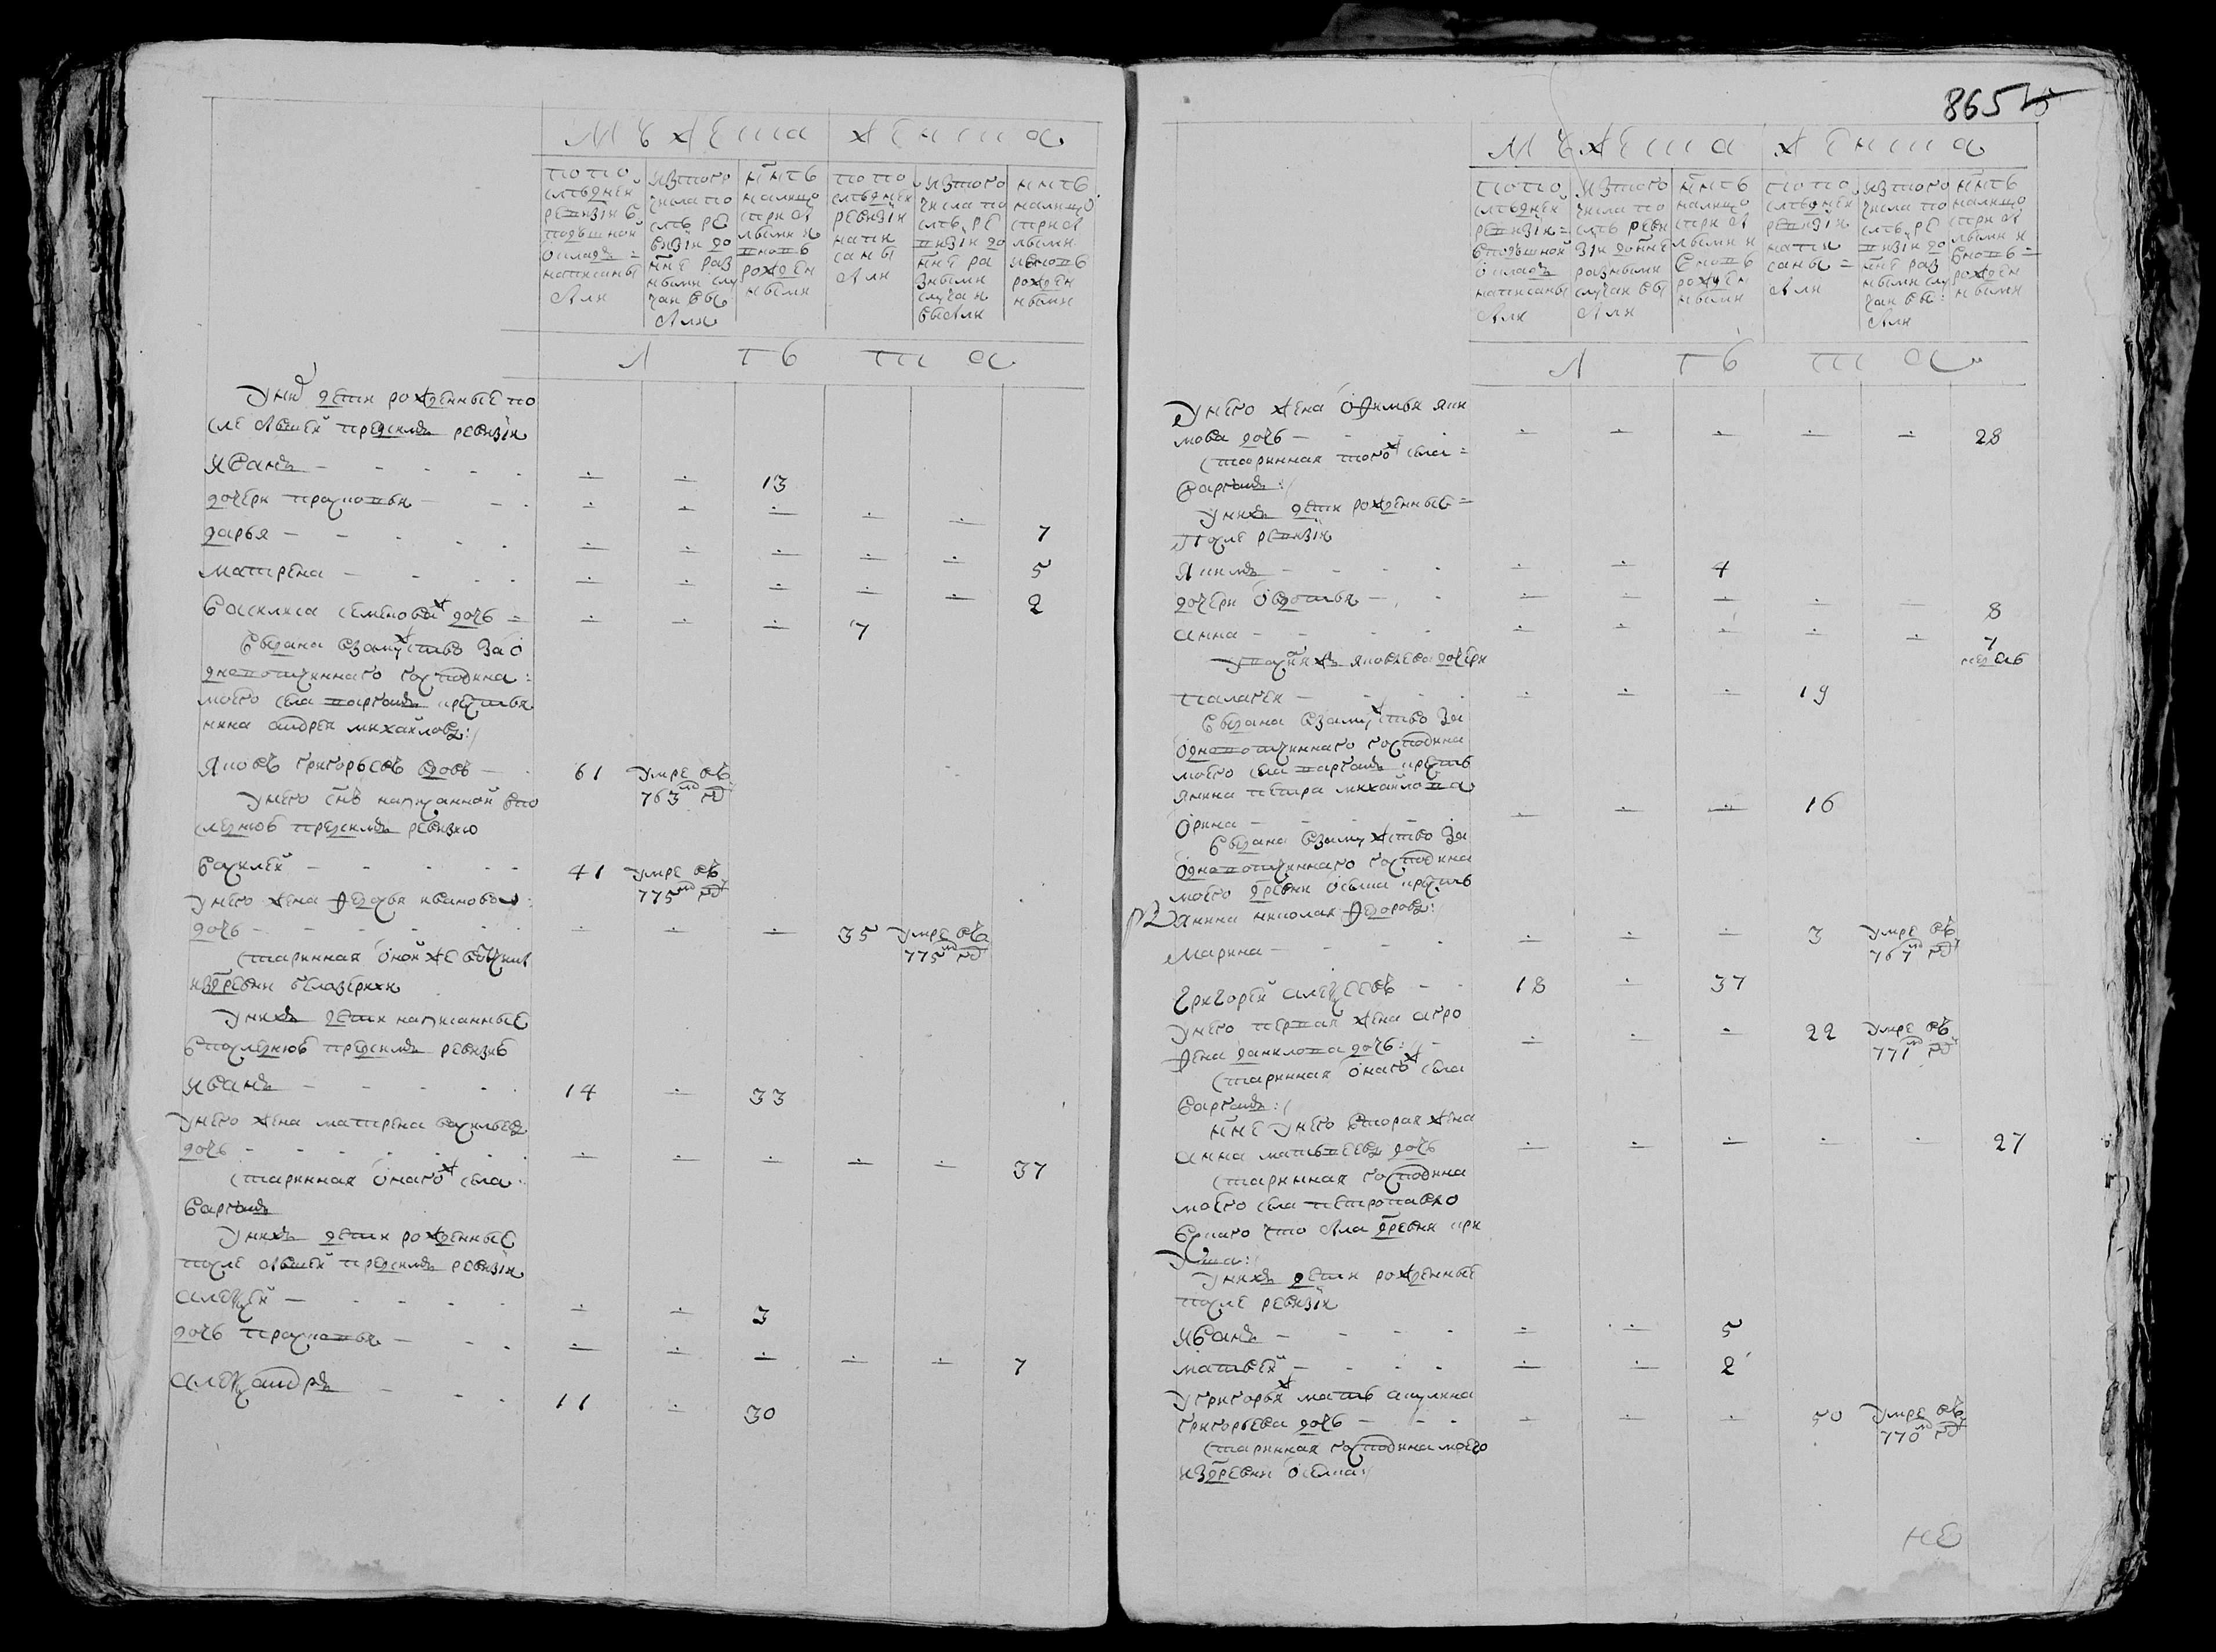 мужеска женска
по по
следней
ревизии в
подушной
окладъ =
написаны
были
изтого
числа по
слѣ ре
визіи до
ннѣ раз
ными слу
чаи вы
были
ннѣ
налицо
сприбы
лыми и
вновь
рожден
ными
по по
следней
ревизіи
напи
саны
были
изтого
числа по
слѣ ре
визіи до
ннѣ ра
зными
случаи
выбыли
ннѣ
налицо
сприбы
лыми
и вновь
рожден
ными
лѣта
У них дети рожденные по
сле бывшей предсимъ ревизіи
Иванъ — 13
дочери прасковья — 7
дарья — 5
матрена — 2
василиса семенова ж дочь = 7
выдана взамужство за о
дновотчиннаго господина
моего села варганъ крестья
нина андрея михайлова:/
Яковъ григорьевъ вдовъ — 61 умре въ
763 м гд
У него снъ написанной впо
следнюю предсимъ ревизию
василей — 41 умре въ
775 м гд
У него жена федосья иванова
дочь — 35 умре въ
775 м гд
старинная оной же вотчины
издеревни белазерихи
У нихъ дети написанные
впоследнюю предсимъ ревизию
Иванъ — 14 33
У него жена матрена васильева
дочь — 37
старинная онаго ж села
варганъ
У нихъ дети рожденные
после бывшей предсимъ ревизіи
алексей — 3
дочь прасковья — 7
александръ — 11 30
865
мужеска женска
по по
следней
ревизіи =
вподушной
окладъ
написаны
были
изтого
числа по
слѣ реви
зіи доннѣ
разными
случаи вы
были
ннѣ
налицо
сприбы
лыми и
вновь
рожден
ными
по по
следней
ревизіи
напи
саны =
были
изтого
числа по
слѣ ре
визіи до
ннѣ раз
ными слу
чаи вы
были
ннѣ
налицо
сприбы
лыми и
вновь =
рожден
ными
лѣта
У него жена офимья яки
мова дочь — 28
старинная того ж села =
варганъ:/
У нихъ дети рожденные =
После ревизіи
Якимъ — 4
дочери овдотья — 8
анна — 7
недель
яковлева дочери
палагея — 19
выдана взамужство за
одновотчиннаго господина
моего села варганъ кресть
янина петра михайлова
Орина — 16
выдана взамужство за
одновотчиннаго господина
моего деревни кресть
янина николая федорова:/
Марина — 3 умре въ
767 м гд
Григорей алексеевъ — 18 37
У него первая жена агро
фена данилова дочь:/ 22 умре въ
771 м гд
старинная онаго ж села
варганъ:/
ннѣ У него вторая жена
анна матвеева дочь 27
старинная господина
моего села петропавло
вскаго что была деревня кри
Уша:/
У нихъ дети рожденные
после ревизіи
Иванъ — 5
матвей — 2
У григорья ж мать акулина
григорьева дочь — 50 умре въ
770 м гд
старинная господина моего
издеревни
не